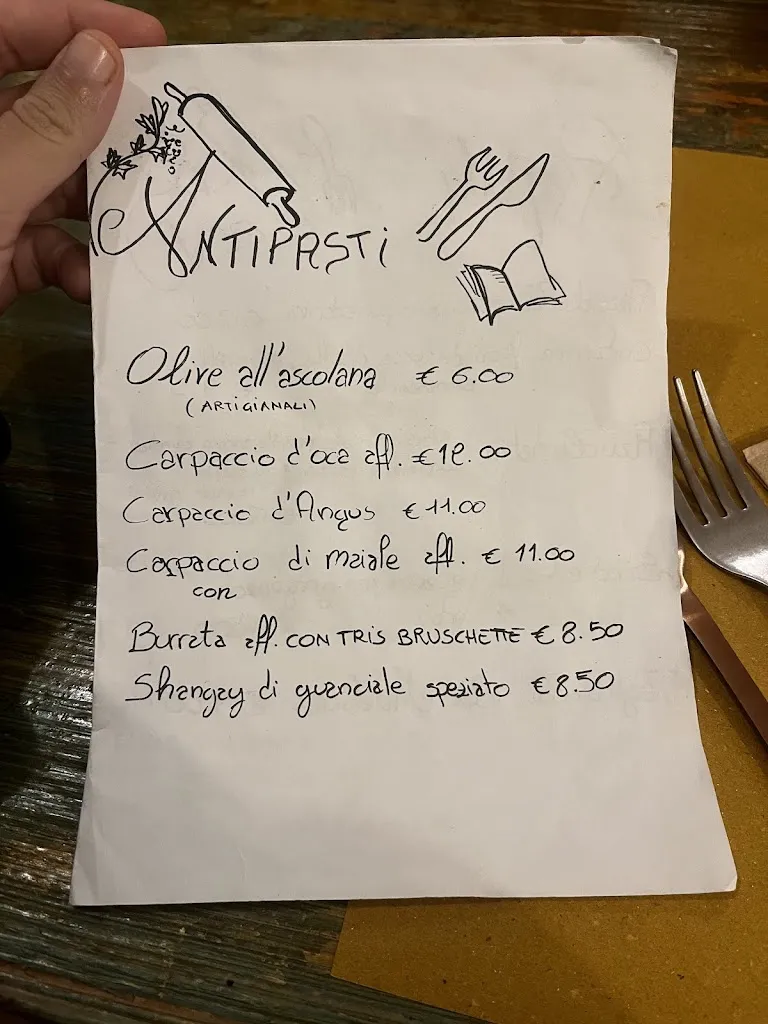 ANTIPASTI
Olive all'ascolana € 6.00
(ARTIGIANALI)
Carpaccio d'oca aff. € 12.00
Carpaccio d'Angus € 11.00
Carpaccio di maiale aff. € 11.00
con
Burrata aff. CON TRIS BRUSCHETTE € 8.50
Shangay di guanciale speziato € 8.50